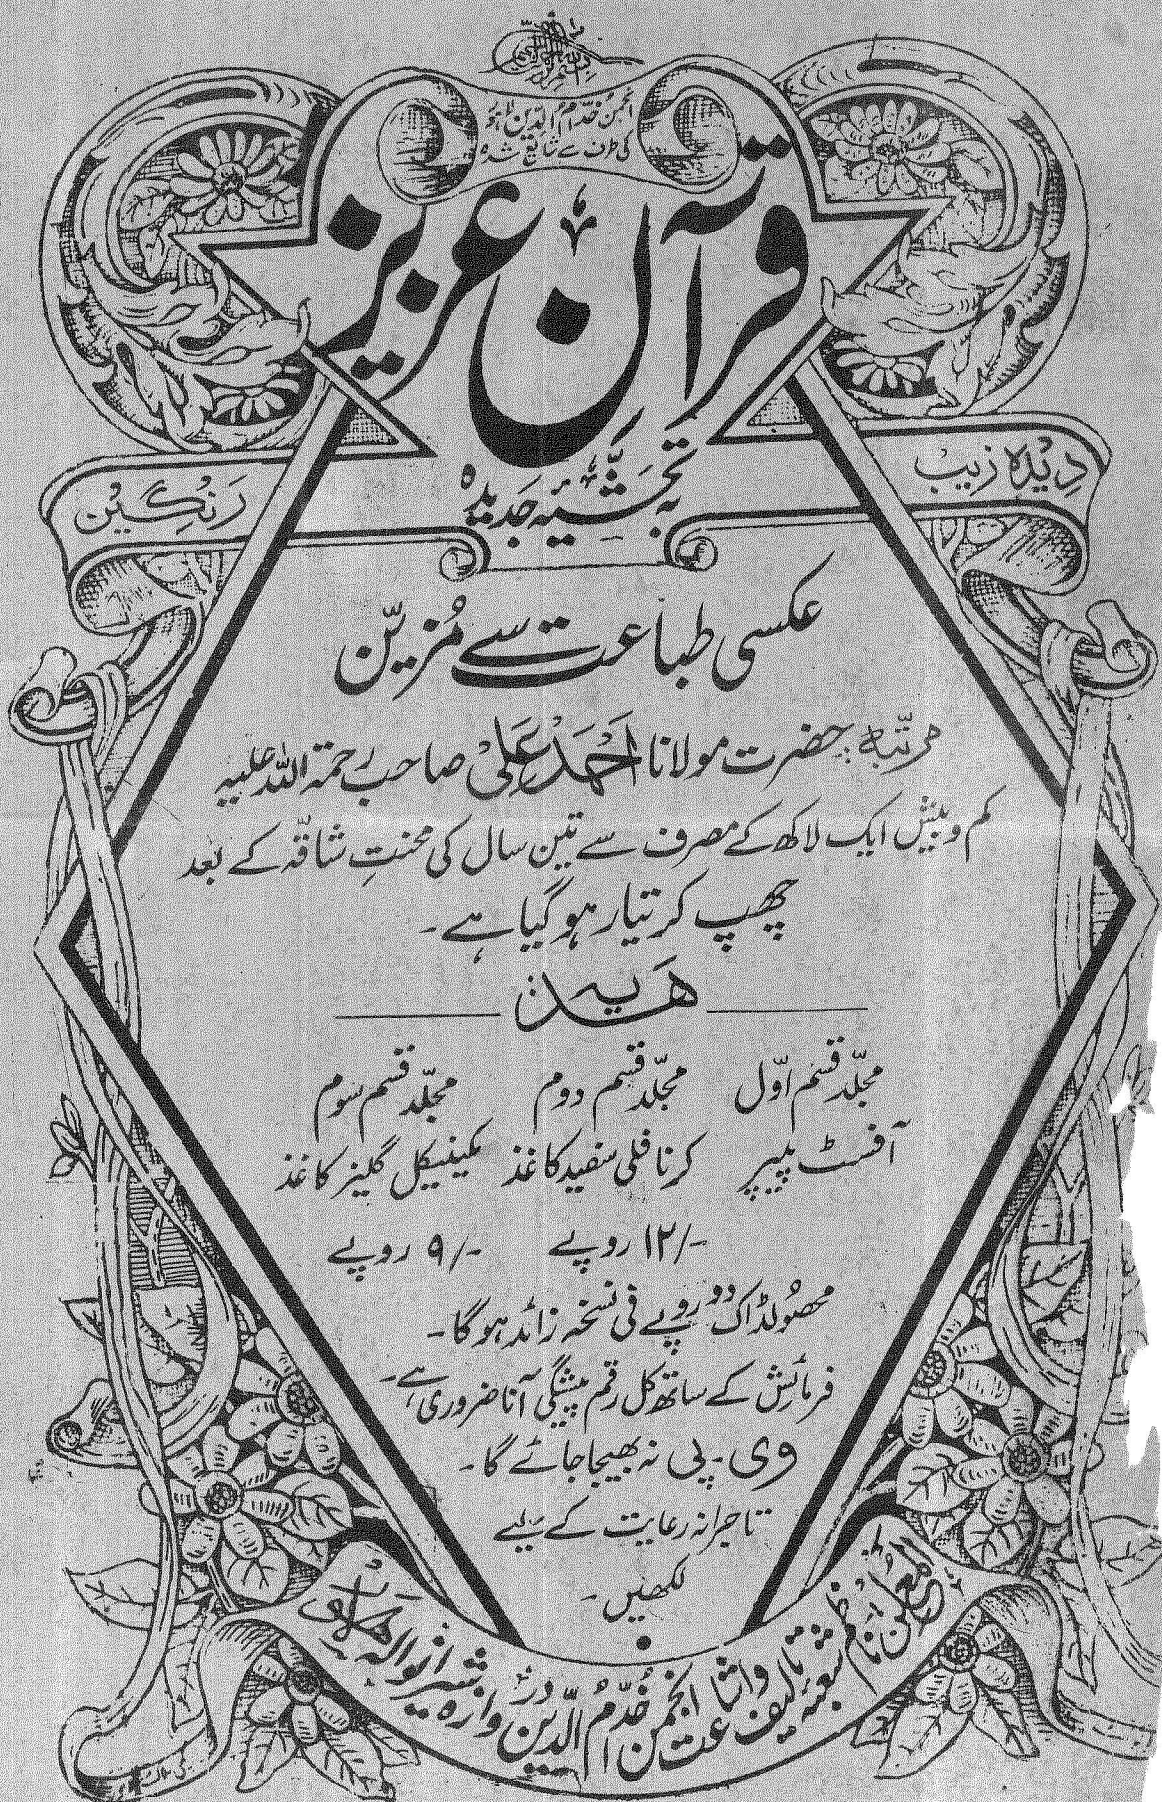 بسم اللہ الرحمن الرحیم
انجمن خدّام الدّین لاہور
کی طرف سے شایع شدہ
قرآن عزیز
بہ تحشیۂ جدیدہ
دیدہ زیب
رنگین
عکسی طباعت سے مُزیّن
مرتبہ: حضرت مولانا احمد علی صاحب رحمۃ اللہ علیہ
کم و بیش ایک لاکھ کے مصرف سے تین سال کی محنتِ شاقّہ کے بعد
چھپ کر تیار ہو گیا ہے۔
ھدیہ
مجلّد قسم اوّل مجلّد قسم دوم مجلّد قسم سوم
آفسٹ پیپر کرنافلی سفید کاغذ مکینیکل گلیز کاغذ
۱۲/- روپے ۹/- روپے
محصُولڈاک دو روپے فی نسخہ زائد ہوگا۔
فرمائش کے ساتھ کل رقم پیشگی آنا ضروری ہے۔
وی۔پی نہ بھیجا جائے گا۔
تاجرانہ رعایت کے لیے
لکھیں۔
المعلن: ناظم شعبہ تالیف و اشاعت انجمن خُدّامُ الدّین دروازہ شیرانوالہ لاہور